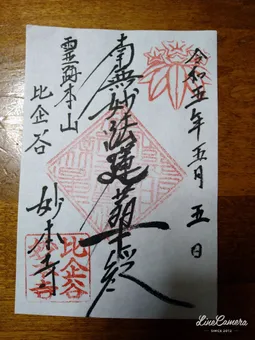 令和五年五月五日
南無妙法蓮華経
霊跡本山
比企谷
妙本寺
比企谷
LineCamera